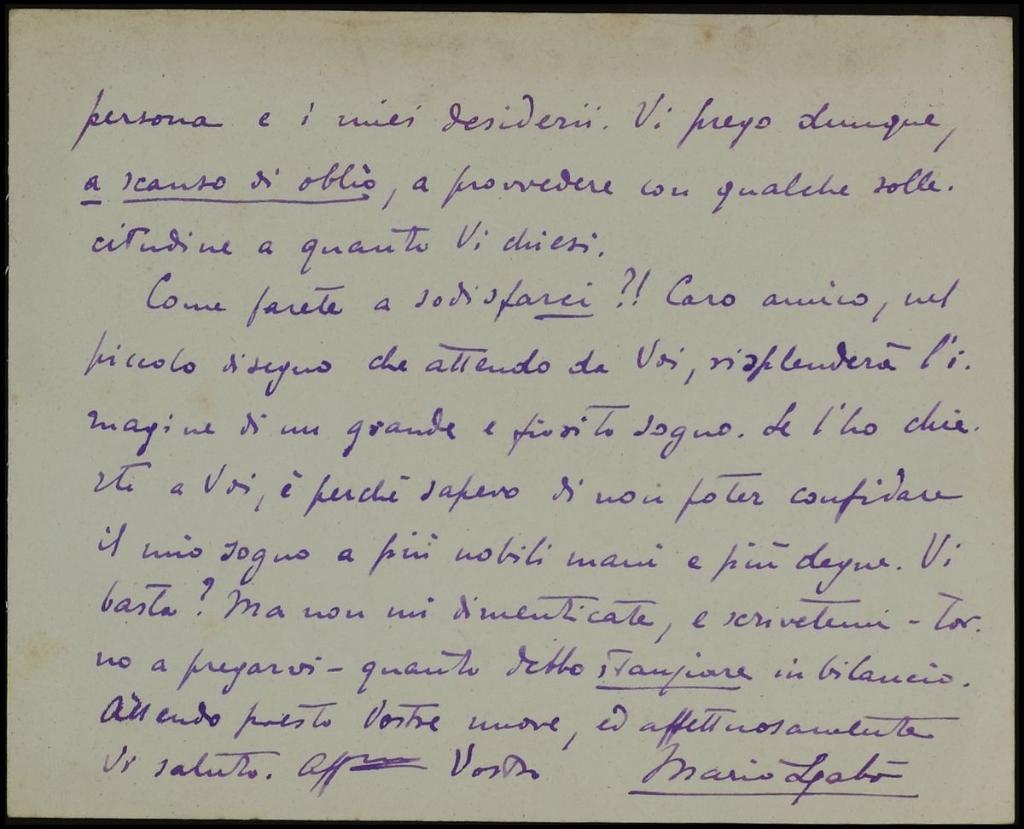 persona e i miei desiderii. Vi prego dunque,
a scanso di oblìo, a provvedere con qualche solle-
citudine a quanto Vi chiesi.
Come farete a sodisfarci?!! Caro amico, nel
piccolo disegno che attendo da Voi, risplenderà l'i-
magine di un grande e fiorito sogno. Se l'ho chie-
sto a Voi, è perché sapevo di non poter confidare
il mio sogno a più nobili mani e più degne. Vi
basta? Ma non mi dimenticate, e scrivetemi - tor-
no a pregarvi - quanto debbo stanziare in bilancio.
Attendo presto Vostre nuove, ed affettuosamente
Vi saluto. Aff.mo Vostro Mario